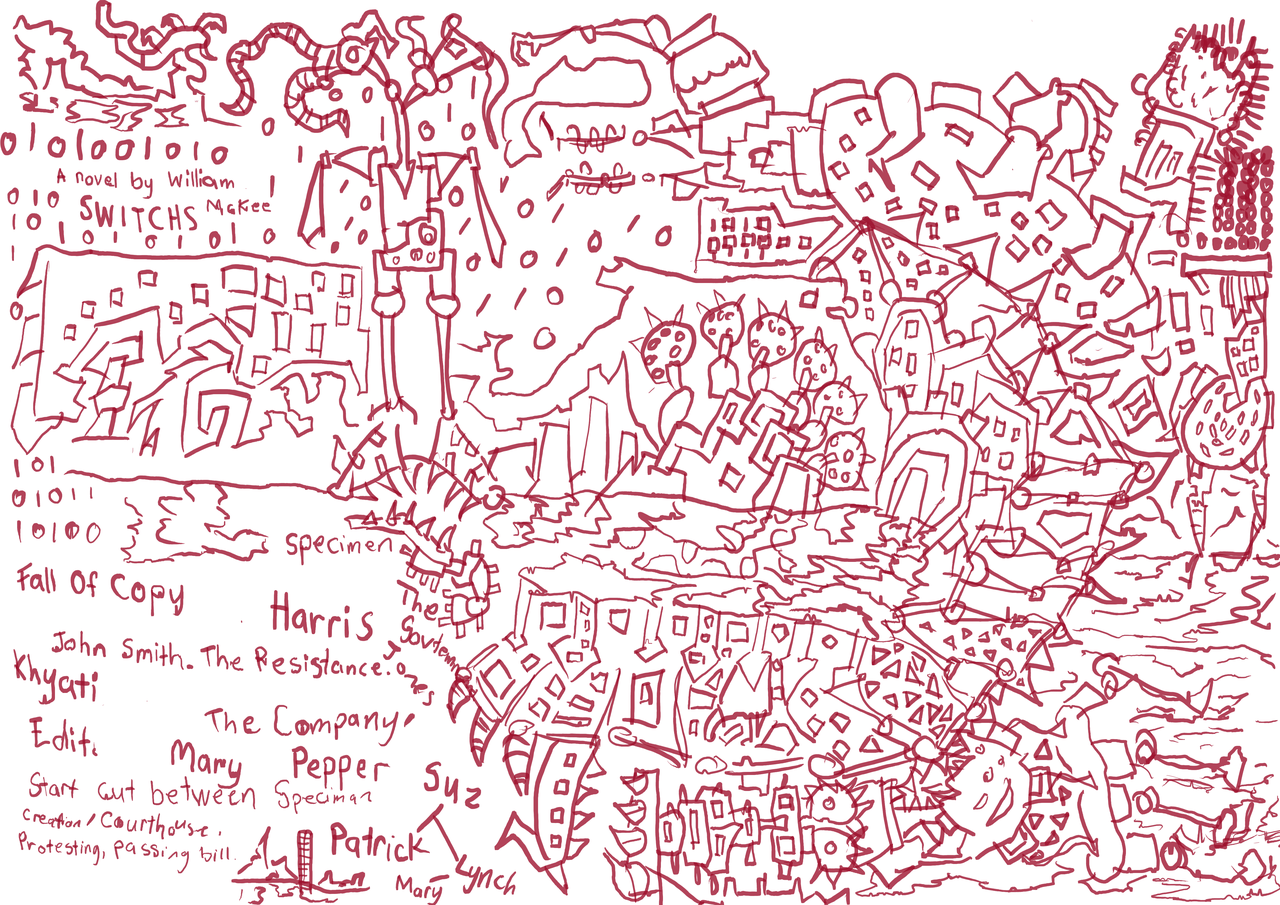 0 1 0 1 0 0 1 0 1 0
A novel by William
McKee
SWITCHS
0 1 0
1 0
1 0 1
0 1 0 1 1
1 0 1 0 0
specimen
Fall Of Copy
Harris
The
John Smith. The Resistance.
Jones
Khyati
The Company,
Edit.
Mary Pepper
Suz
Start cut between Speciman
creation/Courthouse.
Protesting, passing bill.
Patrick
Mary Lynch